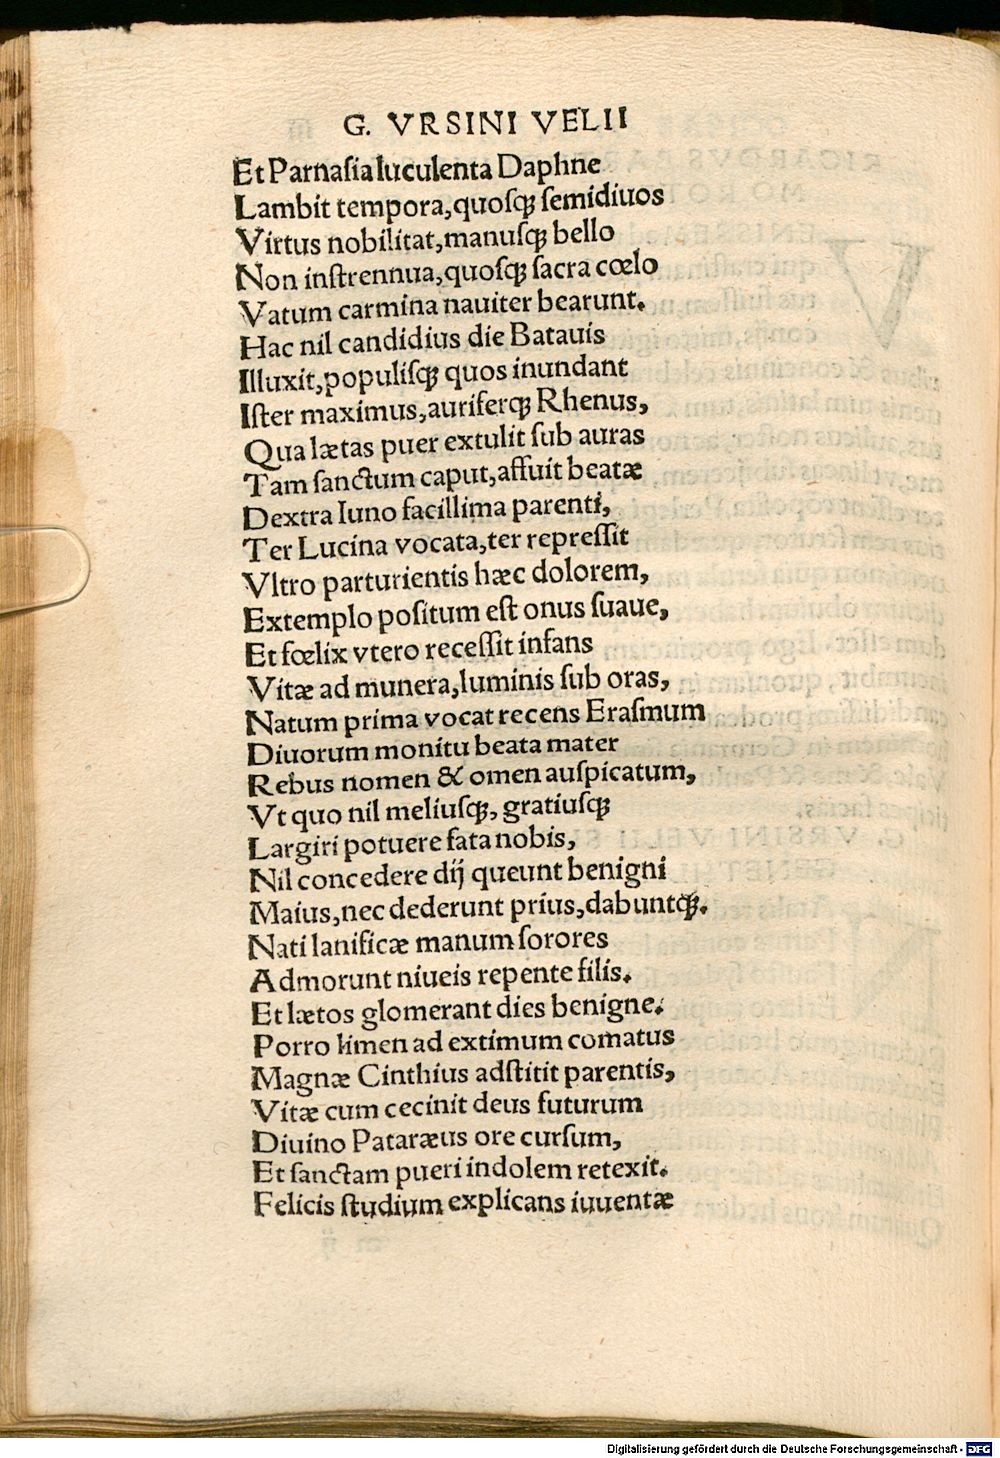 G. VRSINI VELII
Et Parnasia luculenta Daphne
Lambit tempora, quosqꝫ semidiuos
Virtus nobilitat, manusqꝫ bello
Non instrennua, quosqꝫ sacra cœlo
Vatum carmina nauiter bearunt.
Hac nil candidius die Batauis
Illuxit, populisqꝫ quos inundant
Ister maximus, auriferqꝫ Rhenus,
Qua lætas puer extulit sub auras
Tam sanctum caput, affuit beatæ
Dextra Iuno facillima parenti,
Ter Lucina vocata, ter repressit
Vltro parturientis hæc dolorem,
Extemplo positum est onus suaue,
Et fœlix vtero recessit infans
Vitæ ad munera, luminis sub oras,
Natum prima vocat recens Erasmum
Diuorum monitu beata mater
Rebus nomen & omen auspicatum,
Vt quo nil meliusqꝫ, gratiusqꝫ
Largiri potuere fata nobis,
Nil concedere dij queunt benigni
Maius, nec dederunt prius, dabuntqꝫ.
Nati lanificæ manum sorores
Admorunt niueis repente filis.
Et lætos glomerant dies benigne.
Porro limen ad extimum comatus
Magnæ Cinthius adstitit parentis,
Vitæ cum cecinit deus futurum
Diuino Pataræus ore cursum,
Et sanctam pueri indolem retexit.
Felicis studium explicans iuuentæ
Digitalisierung gefördert durch die Deutsche Forschungsgemeinschaft - DFG